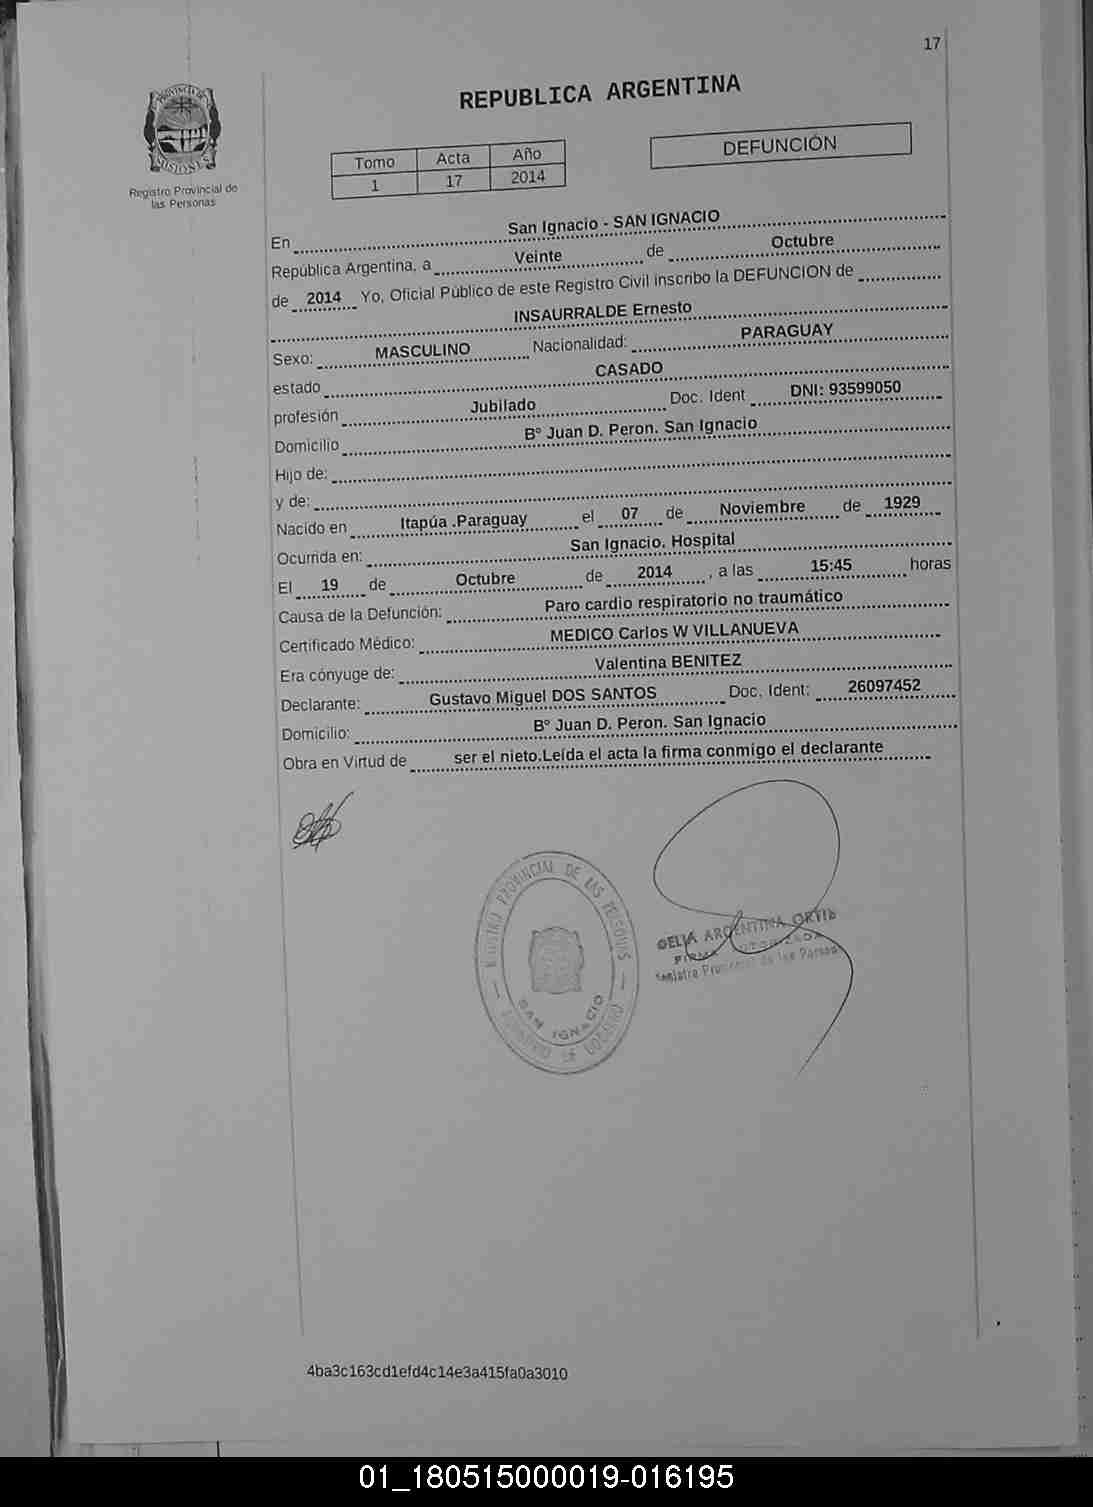 17
PROVINCIA DE
MISIONES
Registro Provincial de
las Personas
REPUBLICA ARGENTINA
Tomo Acta Año
1 17 2014
DEFUNCIÓN
En San Ignacio - SAN IGNACIO
República Argentina, a Veinte de Octubre
de 2014 Yo, Oficial Público de este Registro Civil inscribo la DEFUNCION de
INSAURRALDE Ernesto
Sexo: MASCULINO Nacionalidad: PARAGUAY
estado CASADO
profesión Jubilado Doc. Ident DNI: 93599050
Domicilio Bº Juan D. Peron. San Ignacio
Hijo de:
y de:
Nacido en Itapúa .Paraguay el 07 de Noviembre de 1929
Ocurrida en: San Ignacio. Hospital
El 19 de Octubre de 2014 , a las 15:45 horas
Causa de la Defunción: Paro cardio respiratorio no traumático
Certificado Médico: MEDICO Carlos W VILLANUEVA
Era cónyuge de: Valentina BENITEZ
Declarante: Gustavo Miguel DOS SANTOS Doc. Ident: 26097452
Domicilio: Bº Juan D. Peron. San Ignacio
Obra en Virtud de ser el nieto.Leída el acta la firma conmigo el declarante
REGISTRO PROVINCIAL DE LAS PERSONAS
SAN IGNACIO
ARGENTINA ORTIZ
FIRMA AUTORIZADA
Registro Provincial de las Personas
4ba3c163cd1efd4c14e3a415fa0a3010
01_180515000019-016195